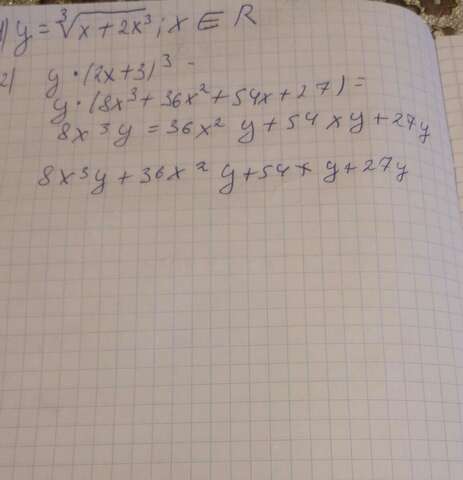 1) y = ∛(x + 2x³); x ∈ R
2) y · (2x+3)³ -
y · (8x³ + 36x² + 54x + 27) =
8x³y = 36x² y + 54 x y + 27y
8x³y + 36x² y + 54x y + 27y